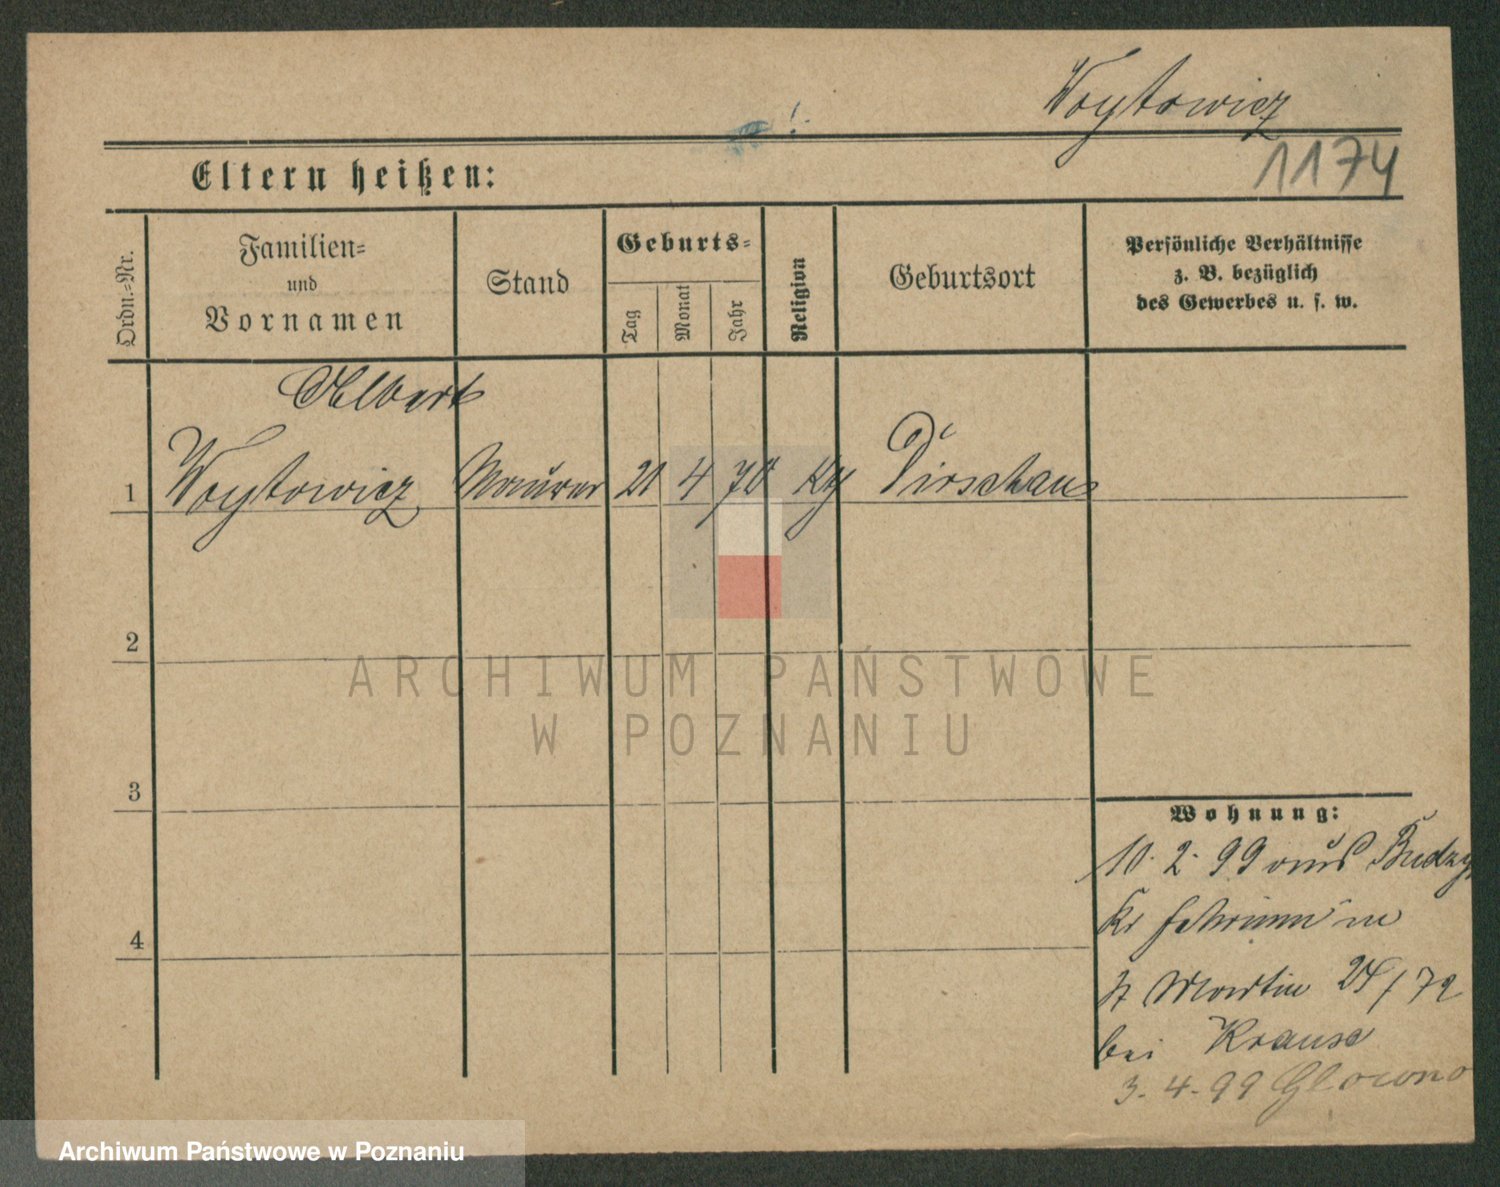 Woytowicz
1174
Eltern heißen:
Ordn.-Nr.
Familien-
und
Vornamen
Stand
Geburts-
Tag
Monat
Jahr
Religion
Geburtsort
Persönliche Verhältnisse
z. B. bezüglich
des Gewerbes u. s. w.
Albert
1 Woytowicz Maurer 21 4 78 Kth Dirschau
2
3
4
ARCHIWUM PAŃSTWOWE
W POZNANIU
Wohnung:
10. 2. 99 aus Budzyn
Kr
St Martin 24/72
bei Krause
3. 4. 99 Glowno
Archiwum Państwowe w Poznaniu